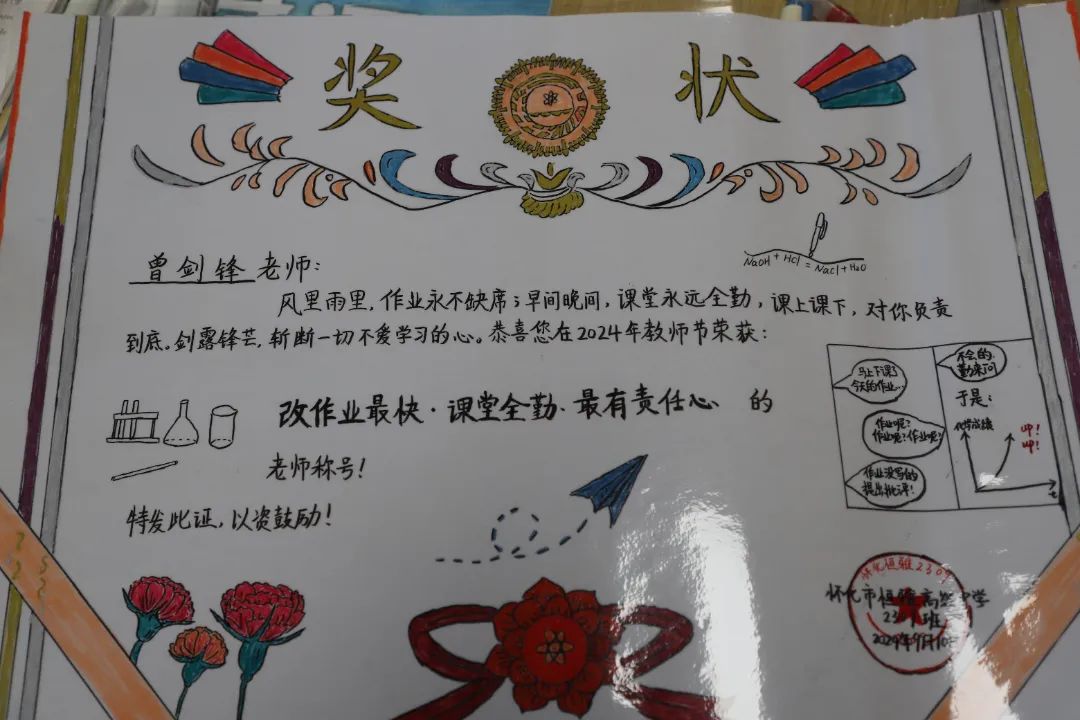 奖 状
曾剑锋老师:
NaOH + HCl = NaCl + H₂O
风里雨里,作业永不缺席;早间晚间,课堂永远全勤,课上课下,对你负责
到底。剑露锋芒,斩断一切不爱学习的心。恭喜您在2024年教师节荣获:
改作业最快·课堂全勤·最有责任心 的
老师称号!
特发此证,以资鼓励!
马上下课了
今天的作业...
作业呢?
作业呢?作业呢?
作业没写的
提出批评!
不会的
勤来问
于是:
化学成绩
up!
up!
t
怀化市恒雅高级中学
班
2024年9月10日